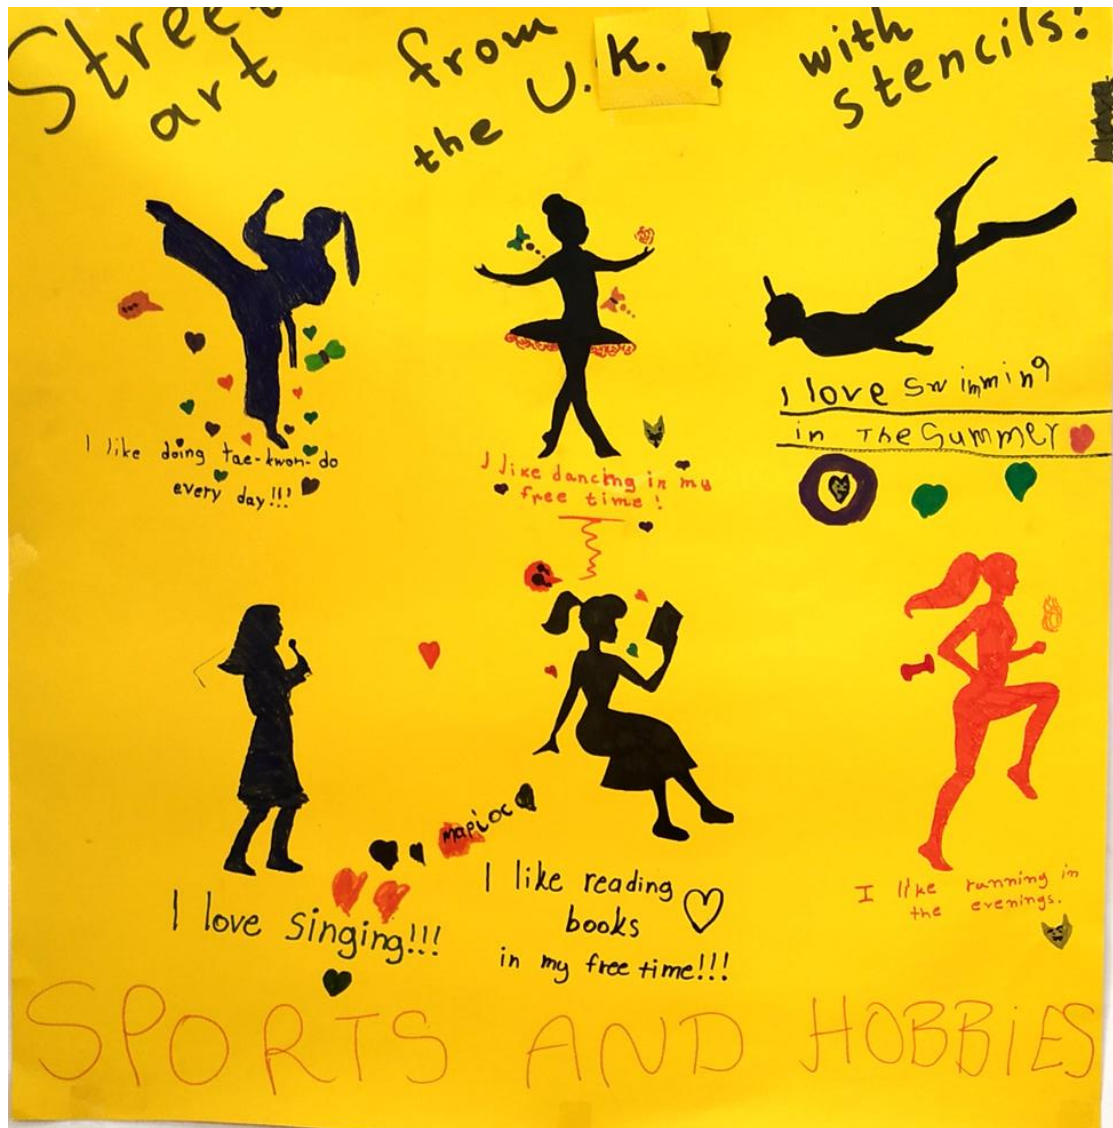 Street
art
from
the U.K. !
with
stencils!
I like doing tae-kwon-do
every day!!!
I like dancing in my
free time!
I love swimming
in The Summer
μαρίος
I love singing!!!
I like reading
books
in my free time!!!
I like running in
the evenings.
SPORTS AND HOBBiES